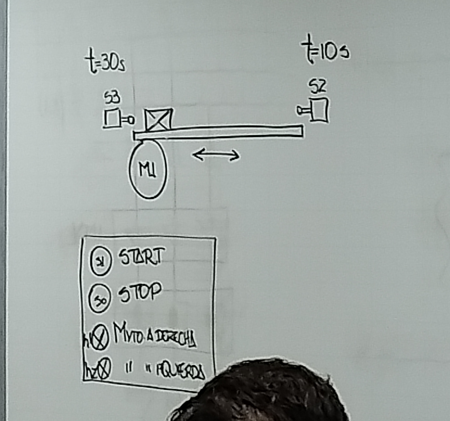 t=30s
t=10s
S3
S2
M1
S1 START
S0 STOP
h1 MVTO. A DERECHA
h2 " " IZQUIERDA